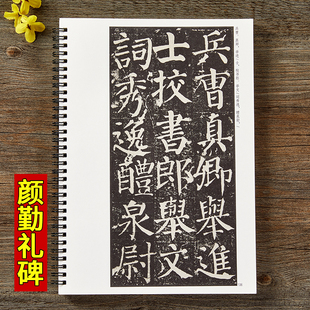 兵曹真卿舉進
士挍書郎舉文
詞秀逸醴泉尉
颜勤礼碑